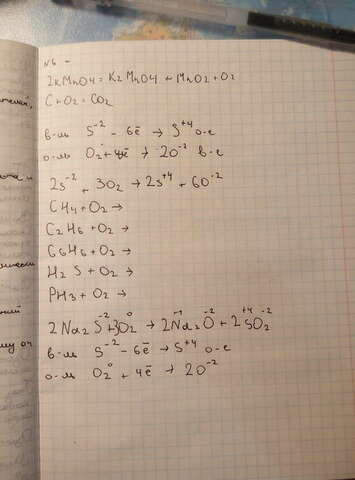 N6 -
2KMnO4 = K2MnO4 + MnO2 + O2
C + O2 = CO2
в-ль S⁻² - 6ē → S⁺⁴ о-е
о-ль O2⁰ + 4ē → 2O⁻² в-е
2S⁻² + 3O2 → 2S⁺⁴ + 6O⁻²
CH4 + O2 →
C2H6 + O2 →
C6H6 + O2 →
H2S + O2 →
PH3 + O2 →
2Na2S⁻² + 3O2⁰ → 2Na2⁻¹O⁻² + 2S⁺⁴O2⁻²
в-ль S⁻² - 6ē → S⁺⁴ о-е
о-ль O2⁰ + 4ē → 2O⁻²